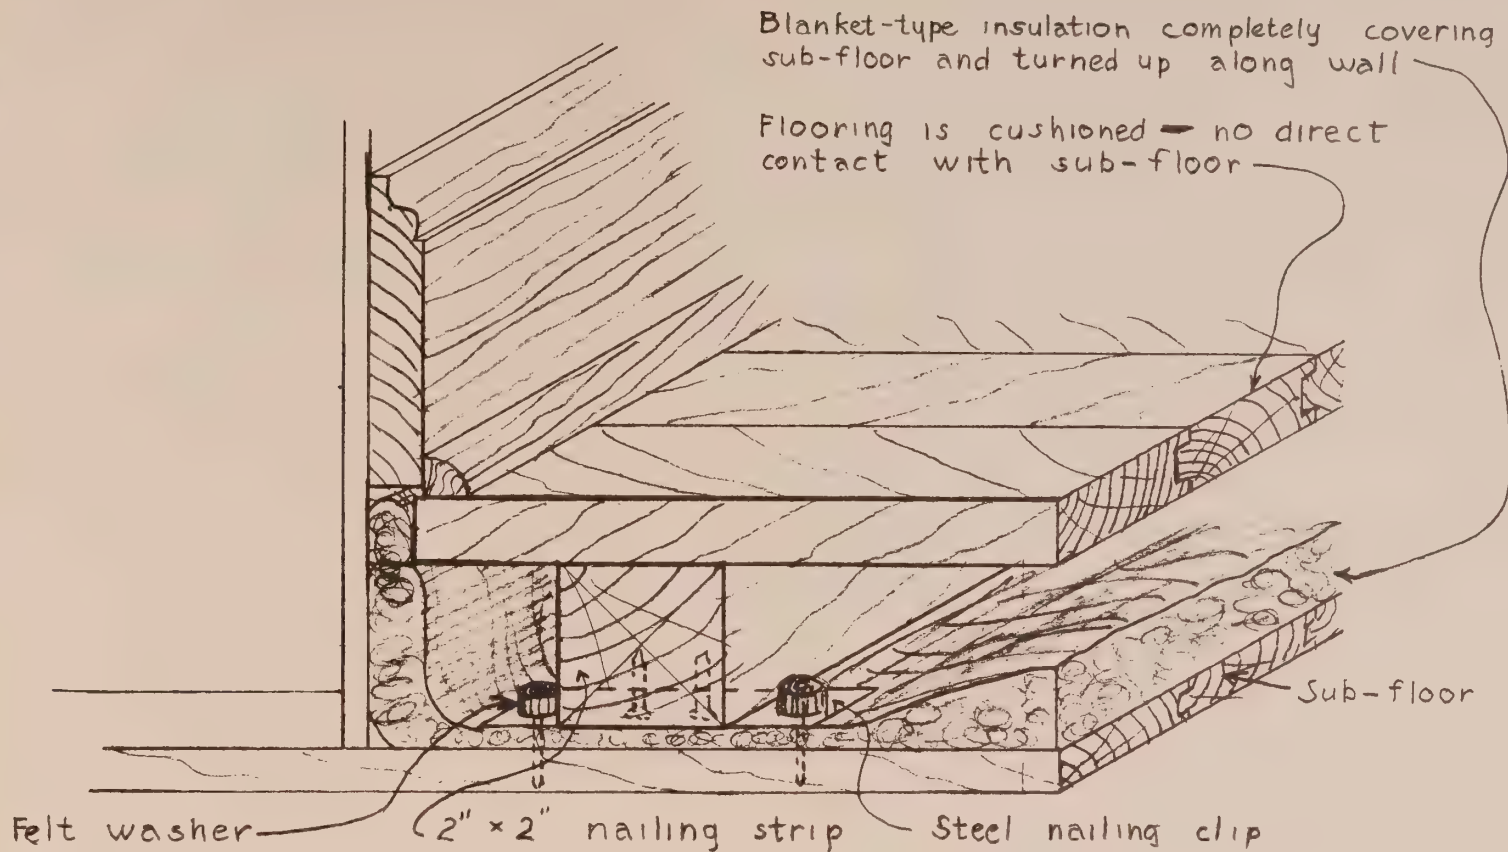 Blanket-type insulation completely covering
sub-floor and turned up along wall
Flooring is cushioned - no direct
contact with sub-floor
Sub-floor
Felt washer
2" × 2" nailing strip
Steel nailing clip